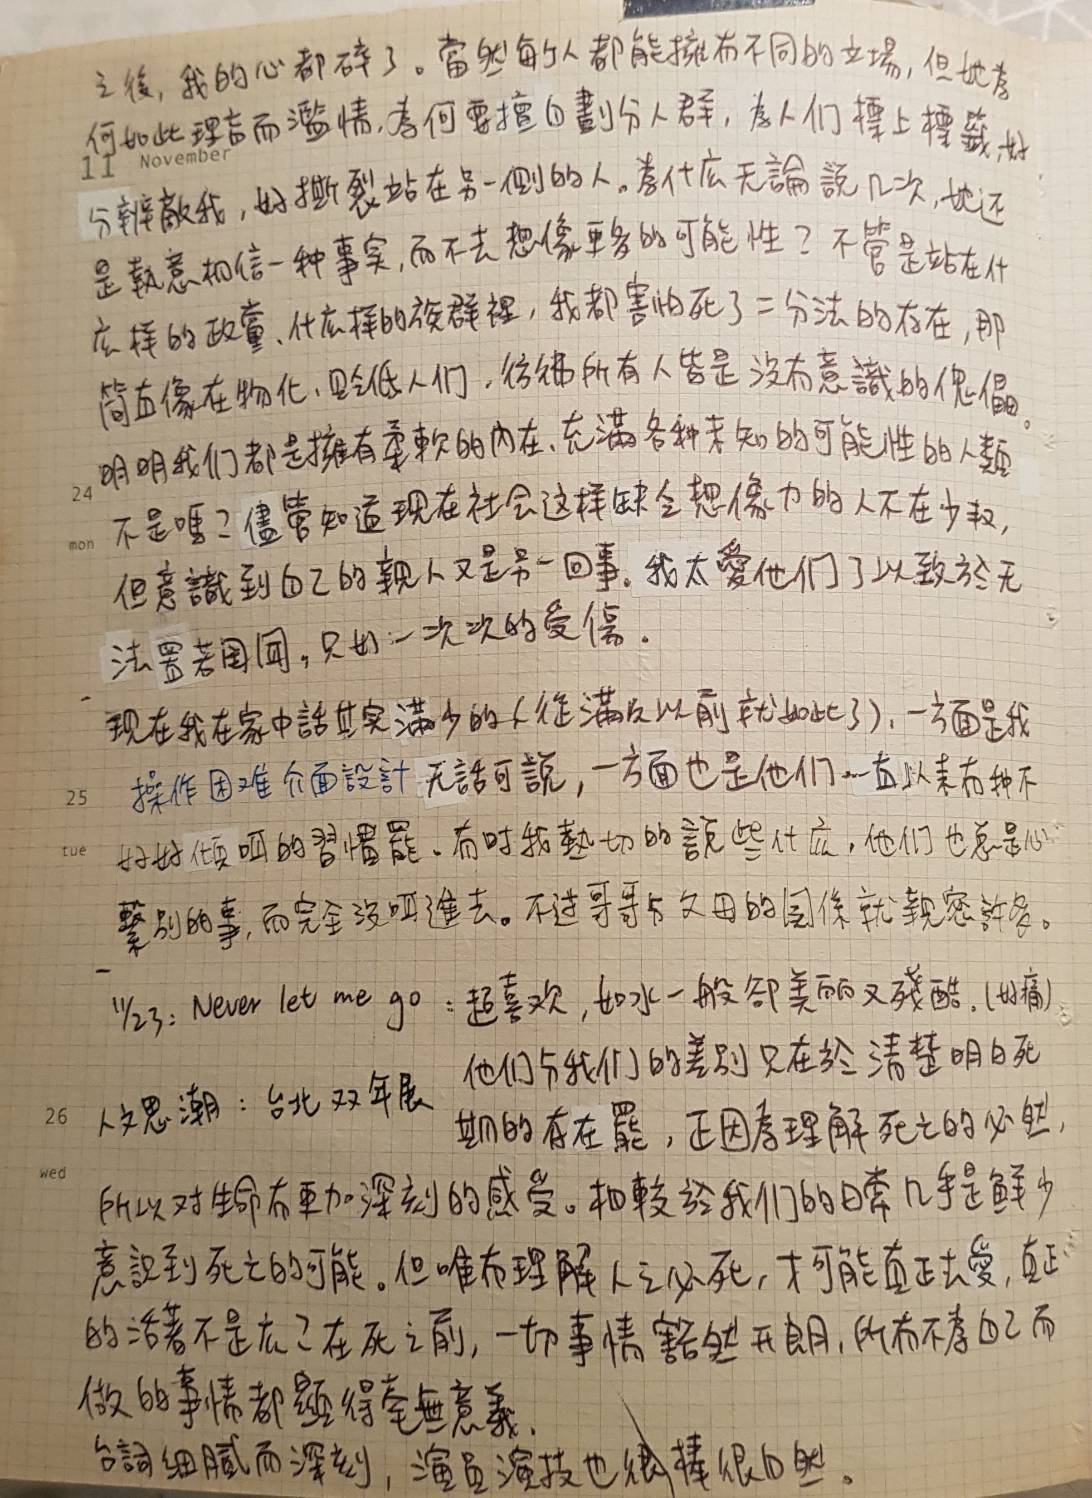 之後，我的心都碎了。當然每个人都能擁有不同的立場，但她為
何如此理盲而濫情，為何要擅自劃分人群，為人们標上標籤，好
11 November
分辨敵我，好撕裂站在另一側的人。為什広无論說几次，她还
是執意相信一种事实，而不去想像更多的可能性？不管是站在什
広样的政黨、什広样的族群裡，我都害怕死了二分法的存在，那
简直像在物化、贬低人们，彷彿所有人皆是沒有意識的傀儡。
明明我们都是擁有柔軟的內在、充滿各种未知的可能性的人類
24
不是嗎？儘管知道現在社会这样缺乏想像力的人不在少数，
mon
但意識到自己的親人又是另一回事。我太愛他们了以致於无
法置若罔聞，只好一次次的受傷。
現在我在家中話其实滿少的人(從滿久以前就如此了)，一方面是我
25 操作困难介面設計 无話可說，一方面也是他们一直以来有种不
tue
好好傾听的習慣罷。有时我熱切的說些什広，他们也总是心
繫別的事，而完全沒听進去。不过哥哥与父母的関係就親密許多。
11/23：Never let me go：超喜欢，如水一般卻美丽又殘酷。(好痛)
他们与我们的差別只在於清楚明白死
26 人文思潮：台北双年展 期的存在罷，正因為理解死亡的必然，
wed
所以对生命有更加深刻的感受。相較於我们的日常几乎是鮮少
意識到死亡的可能。但唯有理解人之必死，才可能真正去愛，真正
的活著不是広？在死之前，一切事情豁然开朗，所有不為自己而
做的事情都顯得毫無意義。
台詞細膩而深刻，演員演技也很棒很自然。